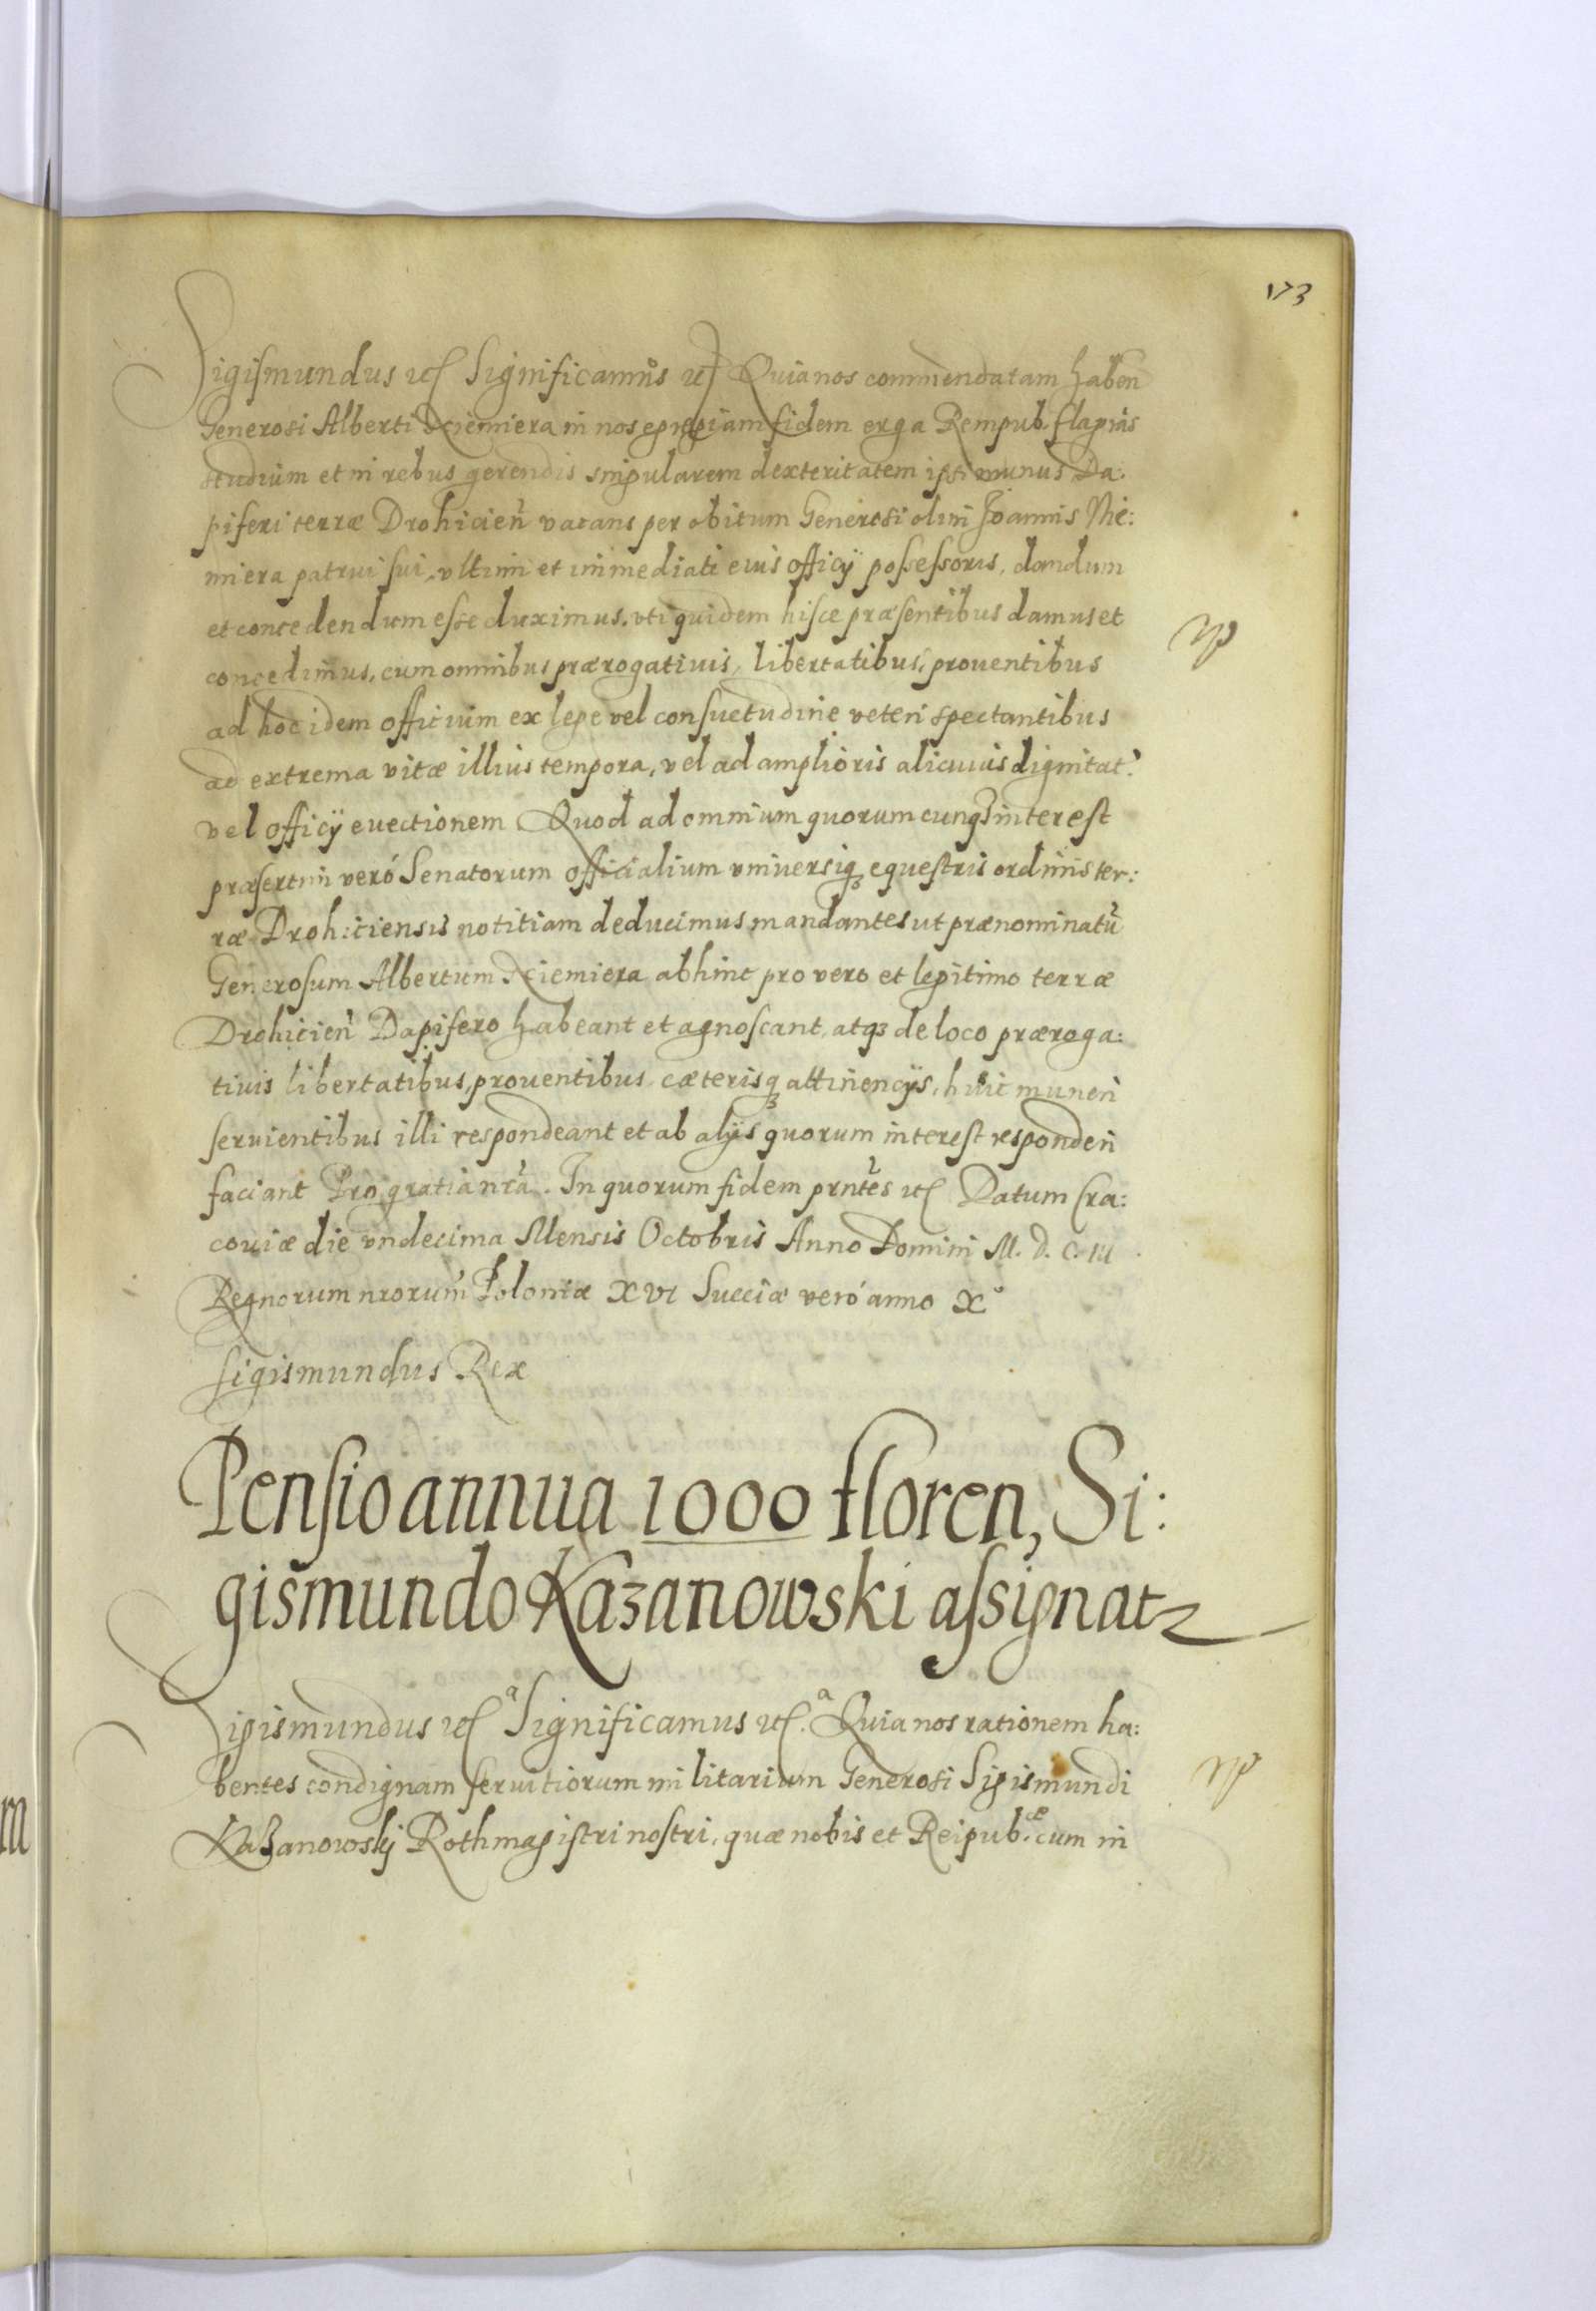 173
Sigismundus etc Significamus etc Quia nos commendatam haben
Generosi Alberti Niemiera in nos egregiam fidem erga Rempub. flagrãs
studium et in rebus gerendis singularem dexteritatem ipsi munus Da:
piferi terræ Drohicien̄ vacans per obitum Generosi olim Joannis Nie:
miera patrui sui, vltimi et immediati eius officÿ possessoris, dandum
et concedendum esse duximus. vti quidem hisce præsentibus damus et
concedimus, cum omnibus prærogatiuis, libertatibus, prouentibus
ad hoc idem officium ex lege vel consuetudine veteri spectantibus
ad extrema vitæ illius tempora, vel ad amplioris alicuius dignitat̃
vel officÿ euectionem Quod ad omnium quorum cunqꝫ interest
præsertim veró Senatorum officialium vniuersiqꝫ equestris ordinis ter:
ræ Drohiciensis notitiam deducimus mandantes ut prænominatũ
Generosum Albertum Niemiera abhinc pro vero et legitimo terræ
Drohicien̄ Dapifero habeant et agnoscant, atqꝫ de loco præroga:
tiuis libertatibus, prouentibus cæterisqꝫ attinencÿs, huic muneri
seruientibus illi respondeant et ab alÿs quorum interest responderi
faciant Pro gratia nr̃a. In quorum fidem prñtes etc Datum Cra:
couiæ die vndecima Mensis Octobris Anno Domini M. D. C. III
Regnorum nrorum̃ Poloniæ XVI Sueciæ veró anno X°
Sigismundus Rex
Pensio annua 1000 floren, Si:
gismundo Kazanowski assignat
Sigismundus etc.ª Significamus etc.ª Quia nos rationem ha:
bentes condignam seruitiorum militarium Generosi Sigismundi
Kazanowskj Rothmagistri nostri, quæ nobis et Reipub.æ cum in